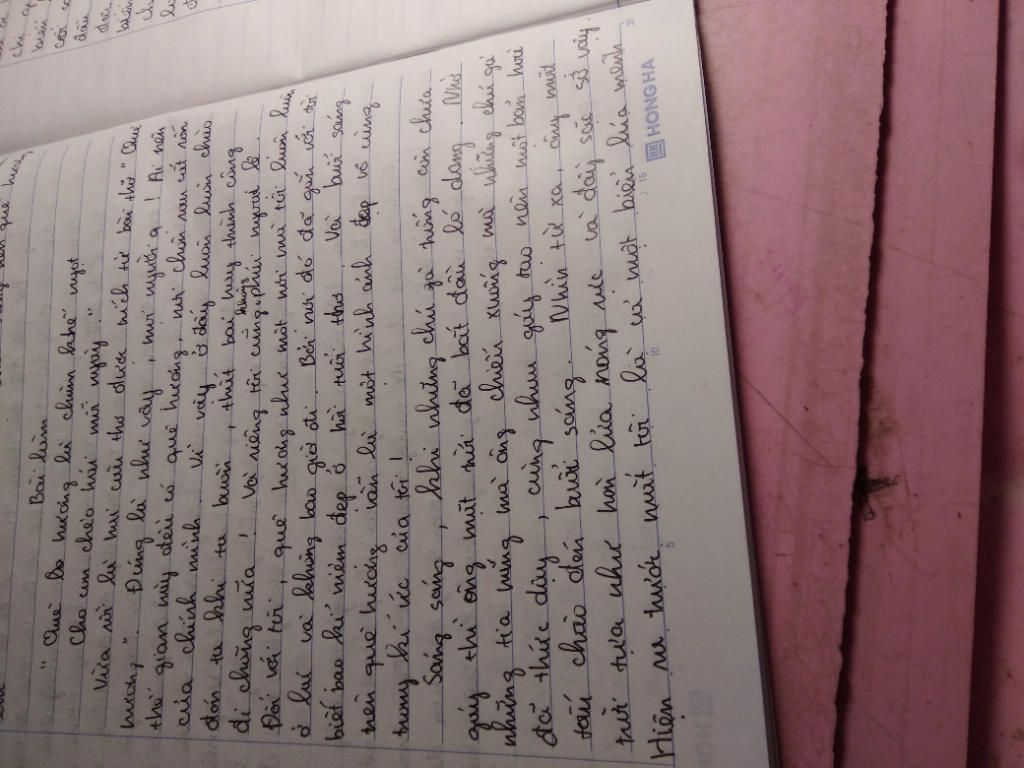 Bài làm
"Quê hương là chùm khế ngọt
Cho em chèo hái mỗi ngày"
Vừa rồi là hai câu thơ được trích từ bài thơ "Quê
hương". Đúng là như vậy, mỗi người ạ! Ai nên
thế gian này đều có quê hương, nơi chôn rau cắt rốn
của chính mình. Vì vậy, ở đấy luôn luôn chào
đón ta khi ta buồn, thất bại hay thành công
đi chăng nữa! Và riêng tôi cũng không phải ngoại lệ.
Đối với tôi, quê hương như một nơi mà tôi luôn luôn
ở lại và không bao giờ đi. Bởi nơi đó đã gắn với tôi
biết bao kỉ niệm đẹp ở hồi tuổi thơ. Và buổi sáng
trên quê hương vẫn là một hình ảnh đẹp vô cùng
trong kí ức của tôi!
Sáng sáng, khi những chú gà trống còn chưa
gáy thì ông mặt trời đã bắt đầu ló dạng. Nhờ
những tia nắng mà ông chiếu xuống mà những chú gà
đã thức dậy, cùng nhau gáy tạo nên một bản hoà
tấu chào đón buổi sáng. Nhìn từ xa, ông mặt
trời tựa như hòn lửa nóng rực và đầy sắc sỡ vậy.
Hiện ra trước mắt tôi là cả một biển lúa mênh
HONGHA
5
10
15
20